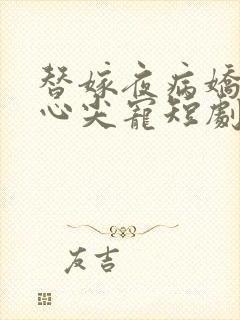 替嫁夜病嬌
心尖寵短劇
友吉